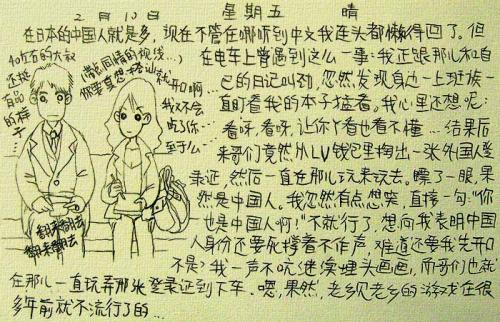 2月10日 星期五 晴
在日本的中国人就是多，现在不管在哪听到中文我连头都懒得回了。但
在电车上曾遇到这么一事:我正跟那儿和自
己的日记叫劲,忽然发现身边一上班族一
直盯着我的本子猛看。我心里还想呢:
看呀,看呀,让你丫看也看不懂...结果后
来哥们竟然从LV钱包里掏出一张外国人登
录证,然后一直在那儿玩来玩去。瞟了一眼,果
然是中国人。我忽然有点想笑,直接一句:"你
也是中国人啊!"不就行了,想向我表明中国
人身份还要死撑着不作声,难道还要我先开口
不是?我一声不吭继续埋头画画,而哥们也就
在那儿一直玩弄那张登录证到下车。嗯,果然,老乡见老乡的游戏在很
多年前就不流行了的...
40左右的大叔
还挺
有品
的样
子...
(带同情的视线...)
你要真想搭讪就
开口啊...
我又不会
吃了你...
至于么...
翻来翻去
翻来翻去